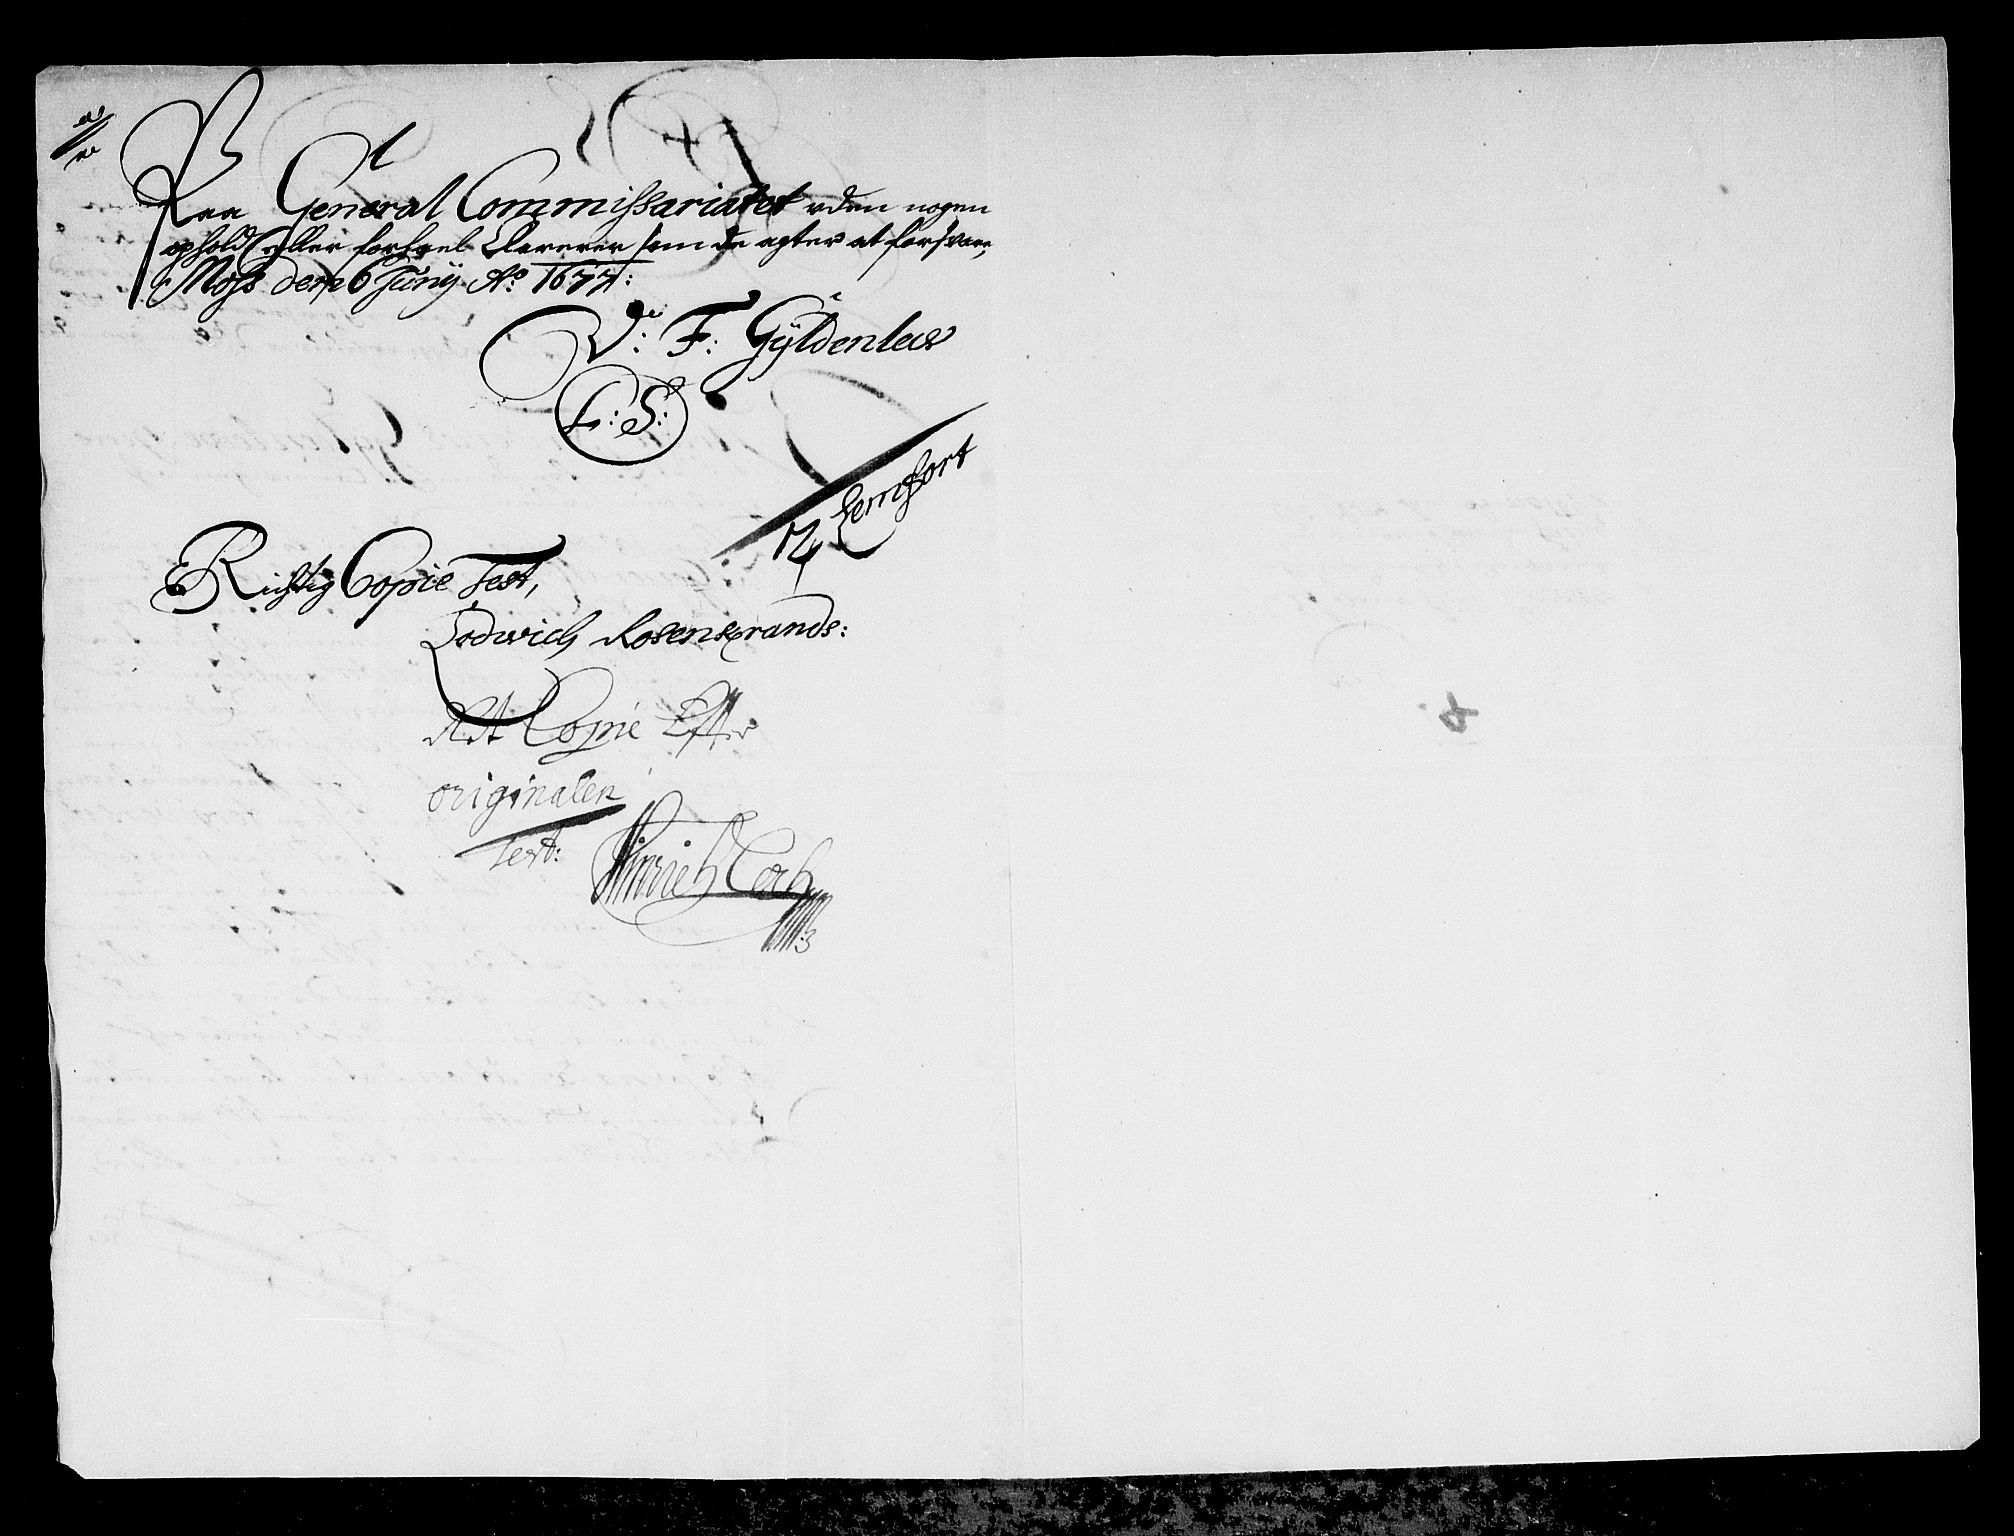 Paa General Commissariatet uden nogen
ophold eller forhael Leverer som de agter at forsvare,
Moss den 6 Junÿ Ao. 1677:
V: F: Gÿldenlew
L: S:
Lemfort
Richtig Copie Test,
Lodwich Rosenkrands:
Ret Copie Effter
originalen
Test:
Hinrich Coch